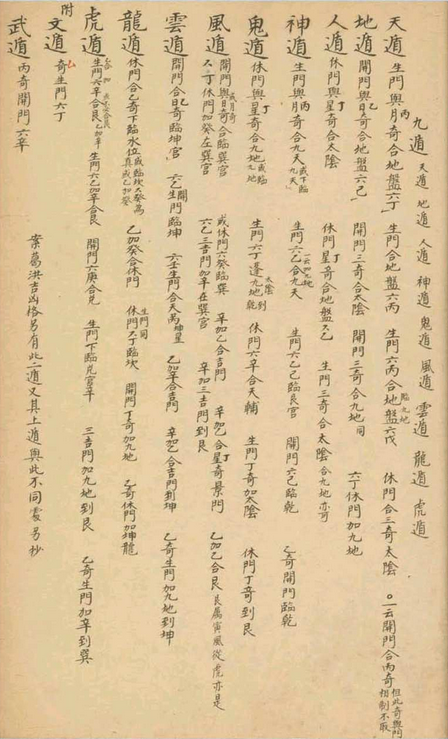 九遁 天遁 地遁 人遁 神遁 鬼遁 風遁 雲遁 龍遁 虎遁
天遁 生門與月丙奇合地盤六丁 生門合地盤六丙 生門六丙合地盤六戊 休門合三奇太陰 〇一云開門合丙奇 但此奇與門相制不取
地遁 開門與日己奇合地盤六己 開門三奇合太陰 開門三奇合九地同臨九地 六丁休門加九地
人遁 休門與星丁奇合太陰 休門星丁奇合地盤六乙 生門三奇合太陰 合九地亦奇
神遁 生門與月丙奇合九天 或下臨九天 生門六乙合九天 生門六乙己臨艮宮 開門六己臨乾 乙奇開門臨乾
鬼遁 休門與星丁奇合九地 或臨九地 生門六丁 太陰 到乾 休門六辛合天輔 生門丁奇加太陰 休門丁奇到艮
風遁 開門與日奇合臨巽宮 休門加癸在巽宮 或休門六癸臨巽 六乙三吉門加辛在巽宮 辛加乙合吉門 辛加三吉門到艮 辛加乙合星丁奇景門 乙加乙合艮 艮屬寅風從虎亦是
雲遁 開門合日己奇臨坤宮 六乙生開門臨坤 六壬生門合天禹坤星 乙加辛合吉門 辛加乙合吉門到坤 乙奇生門加九地到坤
龍遁 休門合乙奇下臨水位 乙加癸合休門 休門六丁臨坎 生門同 開門丁奇加九地 乙奇休門加坤龍
虎遁 生門六辛合艮 生門六乙加辛合艮 開門六庚合兌 生門下臨兌宮辛 三吉門加九地到艮 乙奇生門加辛到巽
附
文遁 乙奇生門六丁
武遁 丙奇開門六辛
案葛洪吉凶格另有此二遁又其上遁與此不同處另抄